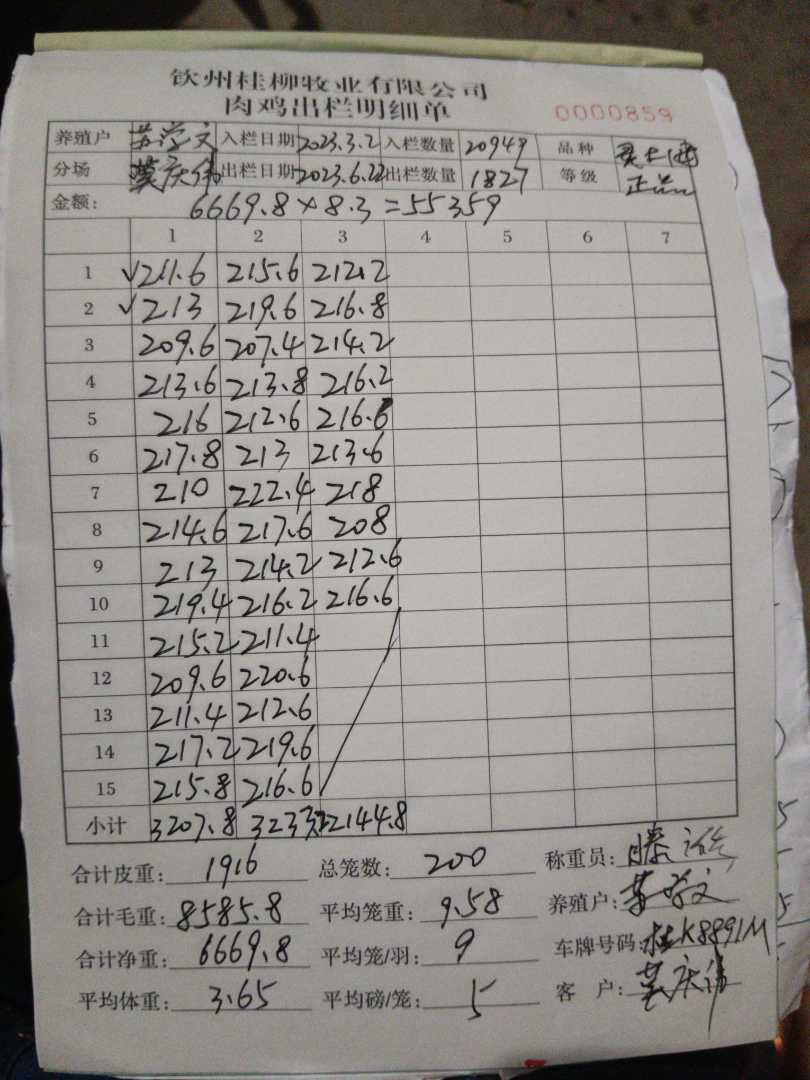 钦州桂柳牧业有限公司
肉鸡出栏明细单 0000859
养殖户 入栏日期 2023.3.2 入栏数量 20949 品种
分场 莫庆伟 出栏日期 2023.6.22 出栏数量 1827 等级 正品
金额: 6669.8×8.3=55359
1 2 3 4 5 6 7
1 √211.6 215.6 212.2
2 √213 219.6 216.8
3 209.6 207.4 214.2
4 213.6 213.8 216.2
5 216 212.6 216.6
6 217.8 213 213.6
7 210 222.4 218
8 214.6 217.6 208
9 213 214.2 212.6
10 219.4 216.2 216.6
11 215.2 211.4
12 209.6 220.6
13 211.4 212.6
14 217.2 219.6
15 215.8 216.6
小计 3207.8 3233.2 2144.8
合计皮重: 1916 总笼数: 200 称重员:
合计毛重: 8585.8 平均笼重: 9.58 养殖户:
合计净重: 6669.8 平均笼/羽: 9 车牌号码: 桂K8891M
平均体重: 3.65 平均磅/笼: 5 客 户: 莫庆伟